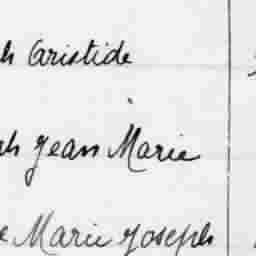 h Aristide
ph Jean Marie
e Marie Joseph